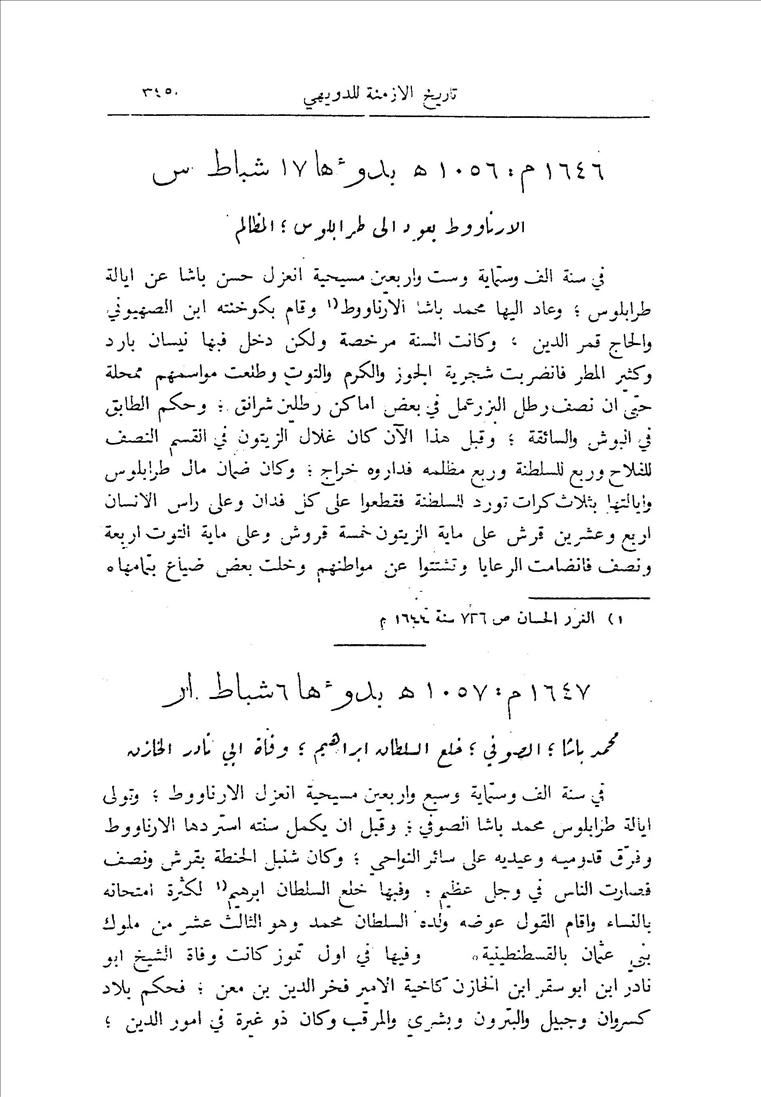 تاريخ الازمنة للدويهي ٣٤٥
١٦٤٦ م : ١٠٥٦ ه بدوءها ١٧ شباط س
الارناووط يعود الى طرابلوس ؛ المظالم
في سنة الف وستماية وست واربعين مسيحية انعزل حسن باشا عن ايالة
طرابلوس ؛ وعاد اليها محمد باشا الارناووط ١) وقام بكوخنته ابن الصهيوني
والحاج قمر الدين ؛ وكانت السنة مرخصة ولكن دخل فيها نيسان بارد
وكثير المطر فانضربت شجرية الجوز والكرم والتوت وطلعت مواسمهم ممحلة
حتى ان نصف رطل البزر عمل في بعض اماكن رطلين شرانق ؛ وحكم الطابق
في البوش والسائقة ؛ وقبل هذا الآن كان غلال الزيتون في القسم النصف
للفلاح وربع للسلطنة وربع مظلمه فداروه خراج ؛ وكان ضمان مال طرابلوس
وايالتها بثلاث كرات تورد السلطنة فقطعوا على كل فدان وعلى راس الانسان
اربع وعشرين قرش على ماية الزيتون خمسة قروش وعلى ماية التوت اربعة
ونصف فانضامت الرعايا وتشتتوا عن مواطنهم وخلت بعض ضياع بتمامها ٠
١) الغرر الحسان ص ٧٢٦ سنة ١٦٤٤ م
١٦٤٧ م : ١٠٥٧ ه بدوءها ٦ شباط ار
محمد باشا ؛ الصوفي ؛ خلع السلطان ابراهيم ؛ وفاة ابي نادر الخازن
في سنة الف وستماية وسبع واربعين مسيحية انعزل الارناووط ؛ وتولى
ايالة طرابلوس محمد باشا الصوفي ؛ وقبل ان يكمل سنته استردها الارناووط
وفرّق قدوميه وعيديه على سائر النواحي ؛ وكان شنبل الحنطة بقرش ونصف
فصارت الناس في وجل عظيم ؛ وفيها خلع السلطان ابرهيم ١) لكثرة امتحانه
بالنساء واقام القول عوضه ولده السلطان محمد وهو الثالث عشر من ملوك
بني عثمان بالقسطنطينية ٠ وفيها في اول تموز كانت وفاة الشيخ ابو
نادر ابن ابو سقر ابن الخازن كاخية الامير فخر الدين بن معن ؛ فحكم بلاد
كسروان وجبيل والبترون وبشري والمرقب وكان ذو غيرة في امور الدين ؛